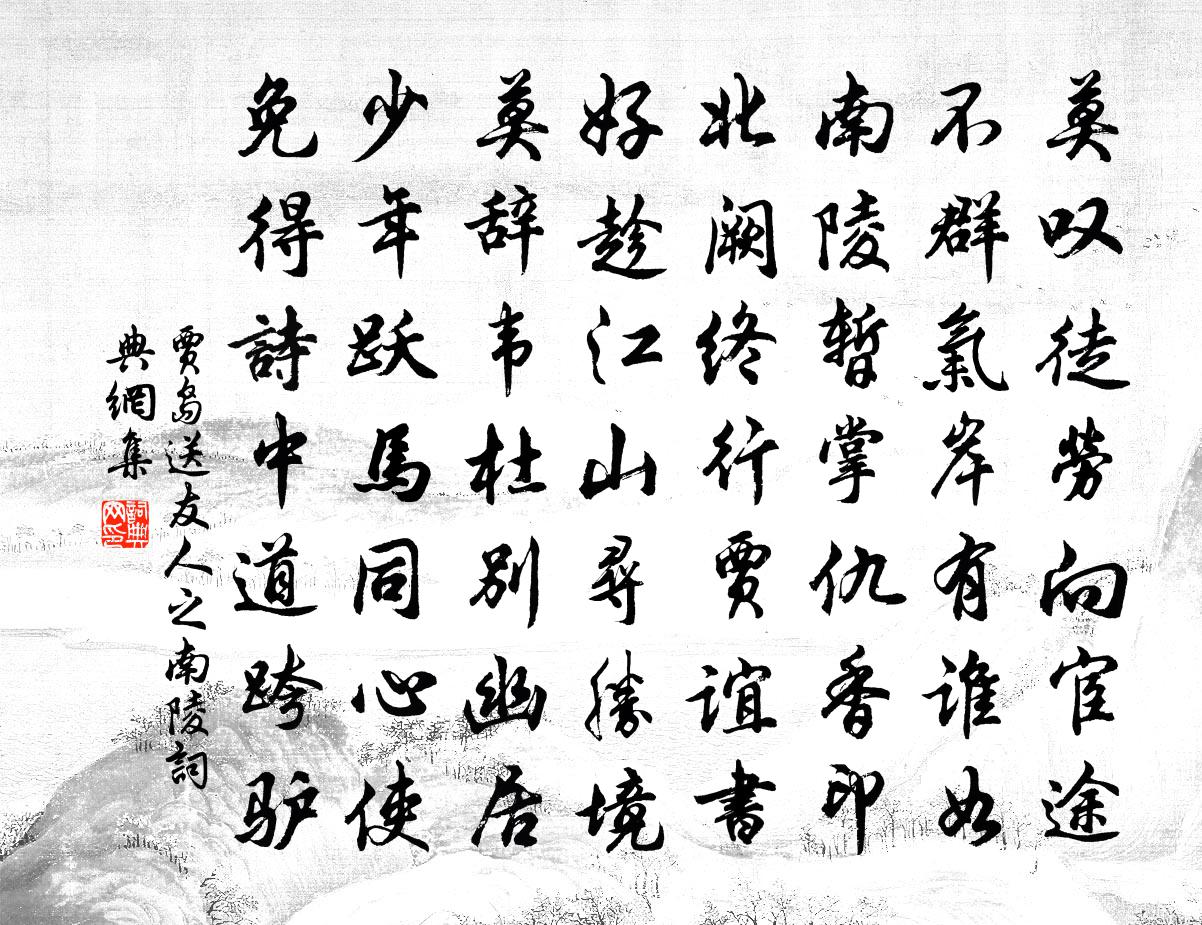 莫叹徒勞向宦途
不群氣岸有谁如
南陵暂掌仇香印
北阙终行贾谊書
好趁江山尋勝境
莫辞韦杜别幽居
少年跃馬同心使
免得詩中道跨驴
贾岛送友人之南陵詞
典網集
詞典网印